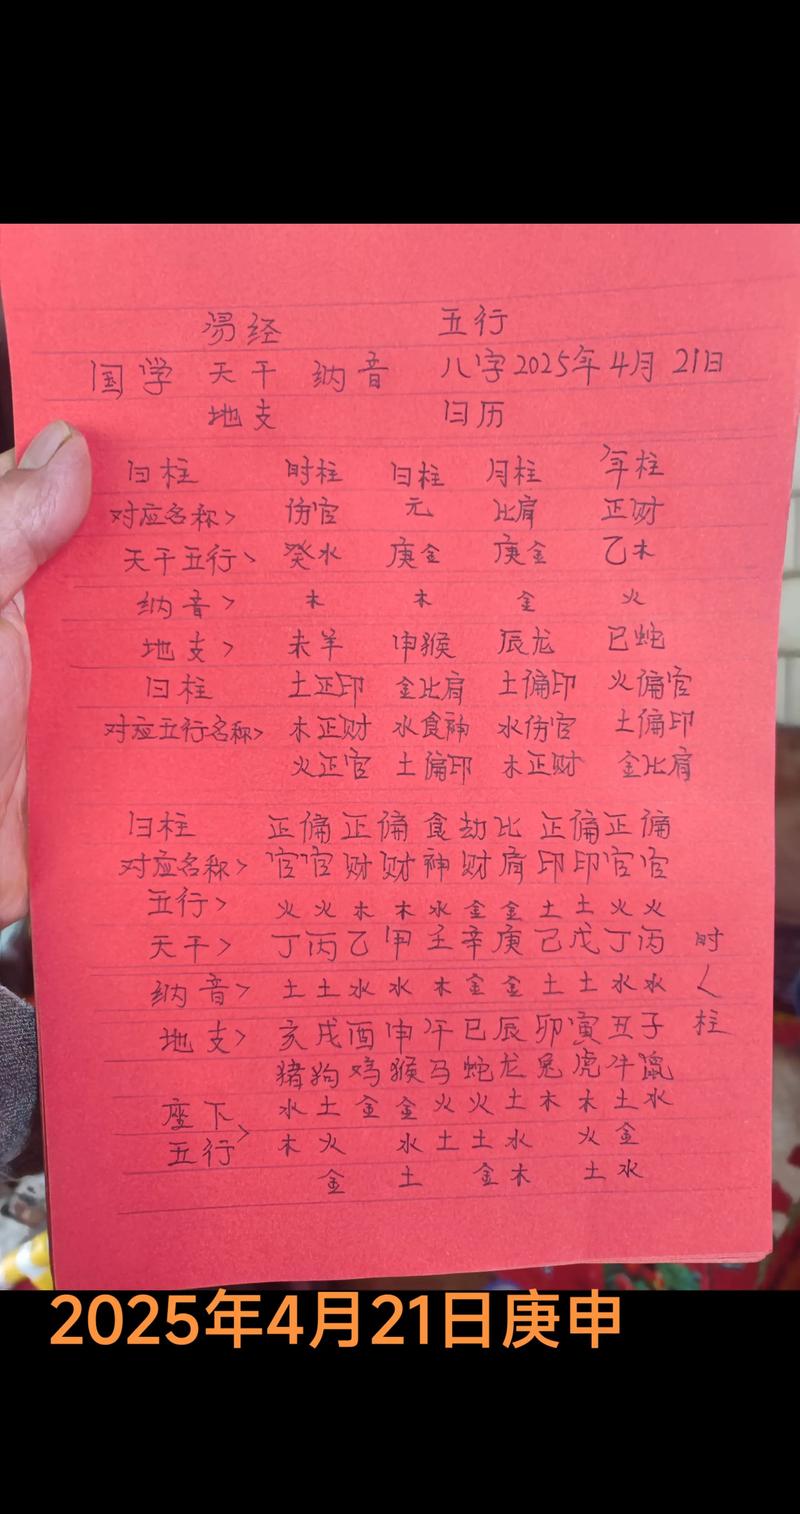 易经 五行
国学 天干 纳音 八字2025年4月21日
地支 日历
日柱 时柱 日柱 月柱 年柱
对应名称> 伤官 元 比肩 正财
天干五行> 癸水 庚金 庚金 乙木
纳音> 木 木 金 火
地支> 未羊 申猴 辰龙 巳蛇
日柱 土正印 金比肩 土偏印 火偏官
对应五行名称> 木正财 水食神 水伤官 土偏印
火正官 土偏印 木正财 金比肩
日柱 正偏正偏食劫比正偏正偏
对应名称> 官官财财神财肩印印官官
五行> 火火木木水金金土土火火
天干> 丁丙乙甲壬辛庚己戊丁丙 时
纳音> 土土水水木金金土土水水
地支> 亥戌酉申午巳辰卯寅丑子 柱
猪狗鸡猴马蛇龙兔虎牛鼠
座下 水土金金火火土木木土水
五行> 木火 水土土水 火金
金 土 金木 土水
2025年4月21日庚申